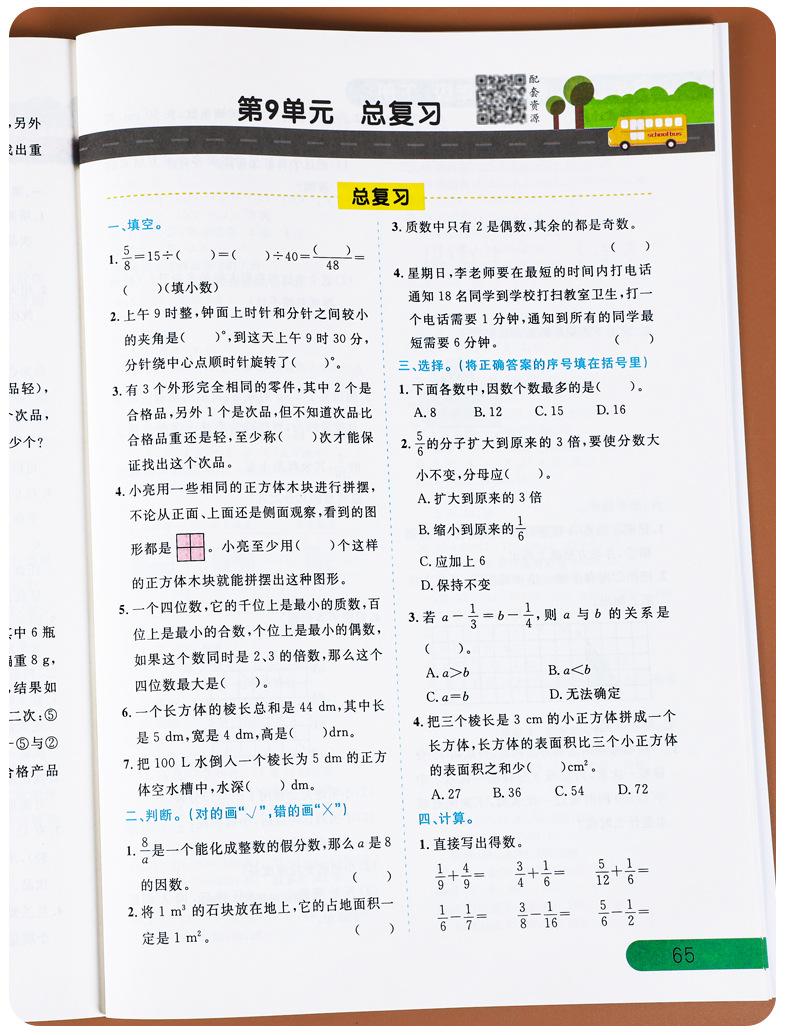 ,另外
找出重
品轻),
个次品,
少个?
其中 6 瓶
重 8 g,
,结果如
二次:⑤
⑤与②
合格产品
第9单元 总复习
配套资源
schoolbus
总复习
一、填空。
1. 5/8=15÷( )=( )÷40=( )/48=
( )(填小数)
2. 上午 9 时整,钟面上时针和分针之间较小
的夹角是( )°,到这天上午 9 时 30 分,
分针绕中心点顺时针旋转了( )°。
3. 有 3 个外形完全相同的零件,其中 2 个是
合格品,另外 1 个是次品,但不知道次品比
合格品重还是轻,至少称( )次才能保
证找出这个次品。
4. 小亮用一些相同的正方体木块进行拼摆,
不论从正面、上面还是侧面观察,看到的图
形都是 。小亮至少用( )个这样
的正方体木块就能拼摆出这种图形。
5. 一个四位数,它的千位上是最小的质数,百
位上是最小的合数,个位上是最小的偶数,
如果这个数同时是 2、3 的倍数,那么这个
四位数最大是( )。
6. 一个长方体的棱长总和是 44 dm,其中长
是 5 dm,宽是 4 dm,高是( )drn。
7. 把 100 L 水倒入一个棱长为 5 dm 的正方
体空水槽中,水深( )dm。
二、判断。(对的画“√”,错的画“×”)
1. 8/a是一个能化成整数的假分数,那么 a 是 8
的因数。 ( )
2. 将 1 m³ 的石块放在地上,它的占地面积一
定是 1 m²。 ( )
3. 质数中只有 2 是偶数,其余的都是奇数。
( )
4. 星期日,李老师要在最短的时间内打电话
通知 18 名同学到学校打扫教室卫生,打一
个电话需要 1 分钟,通知到所有的同学最
短需要 6 分钟。 ( )
三、选择。(将正确答案的序号填在括号里)
1. 下面各数中,因数个数最多的是( )。
A. 8 B. 12 C. 15 D. 16
2. 5/6的分子扩大到原来的 3 倍,要使分数大
小不变,分母应( )。
A. 扩大到原来的 3 倍
B. 缩小到原来的1/6
C. 应加上 6
D. 保持不变
3. 若 a-1/3=b-1/4,则 a 与 b 的关系是
( )。
A. a>b B. a<b
C. a=b D. 无法确定
4. 把三个棱长是 3 cm 的小正方体拼成一个
长方体,长方体的表面积比三个小正方体
的表面积之和少( )cm²。
A. 27 B. 36 C. 54 D. 72
四、计算。
1. 直接写出得数。
1/9+4/9= 3/4+1/6= 5/12+1/6=
1/6-1/7= 3/8-1/16= 5/6-1/2=
65